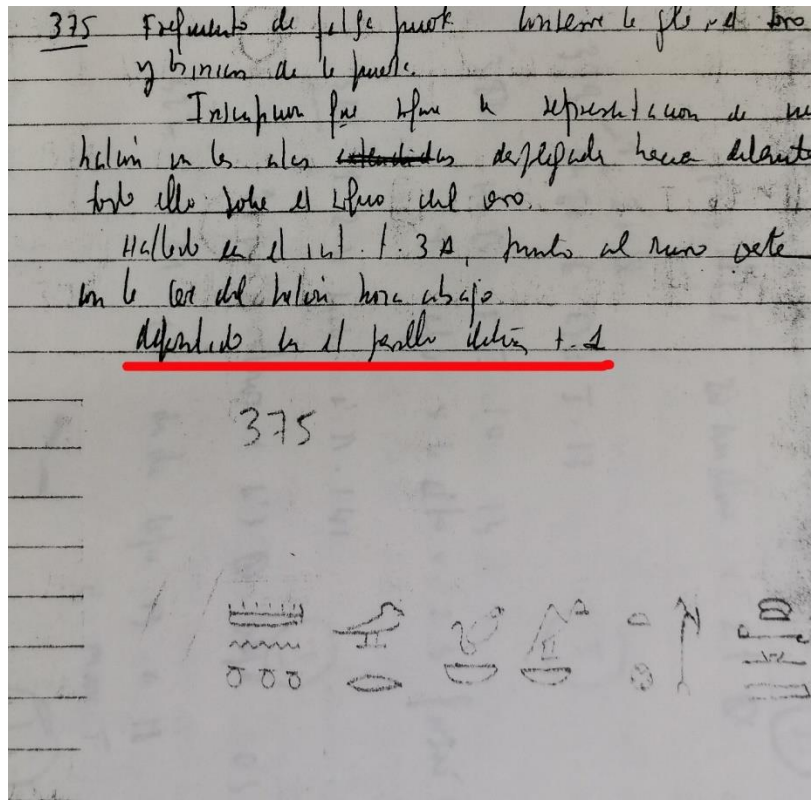 375 Fragmento de falsa puerta contiene la y el toro
y de la puerta.
Inscripcion que sigue a representacion de un
halcón con las alas extendidas desplegadas hacia delante
todo ello sobre el signo del oro.
Hallado en el int. t. 3A, junto al muro oeste
con la cara del halcón hacia abajo.
depositado en el pasillo detrás t. 1
375